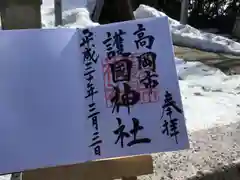 奉拝
高岡市
護国神社
平成二十年三月二日